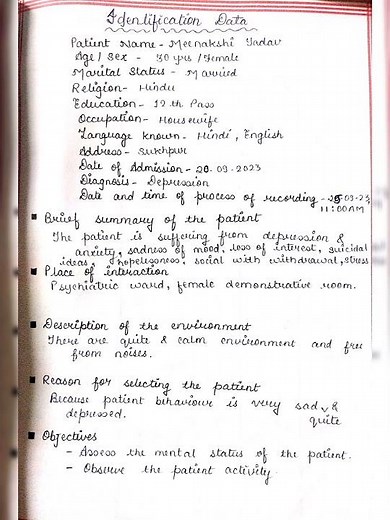 Identification Data
Patient Name - Meenakshi Yadav
Age / Sex - 30 yrs / Female
Marital Status - Married
Religion - Hindu
Education - 12 th Pass
Occupation - Housewife
Language known - Hindi, English
Address - Sukhpur
Date of Admission - 20.09.2023
Diagnosis - Depression
Date and time of process of recording - 25.09.23
11:00AM
Brief summary of the patient
The patient is suffering from depression &
anxiety, sadness of mood, loss of interest, suicidal
ideas, hopelessness, social with withdrawal, stress
Place of interaction
Psychiatric ward, female demonstrative room.
Description of the environment
There are quite & calm environment and free
from noises.
Reason for selecting the patient
Because patient behaviour is very sad &
depressed. quite
Objectives
- Assess the mental status of the patient.
- Observe the patient activity.